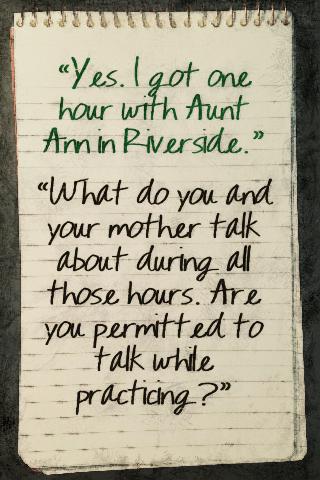 “Yes. I got one
hour with Aunt
Ann in Riverside.”
“What do you and
your mother talk
about during all
those hours. Are
you permitted to
talk while
practicing?”